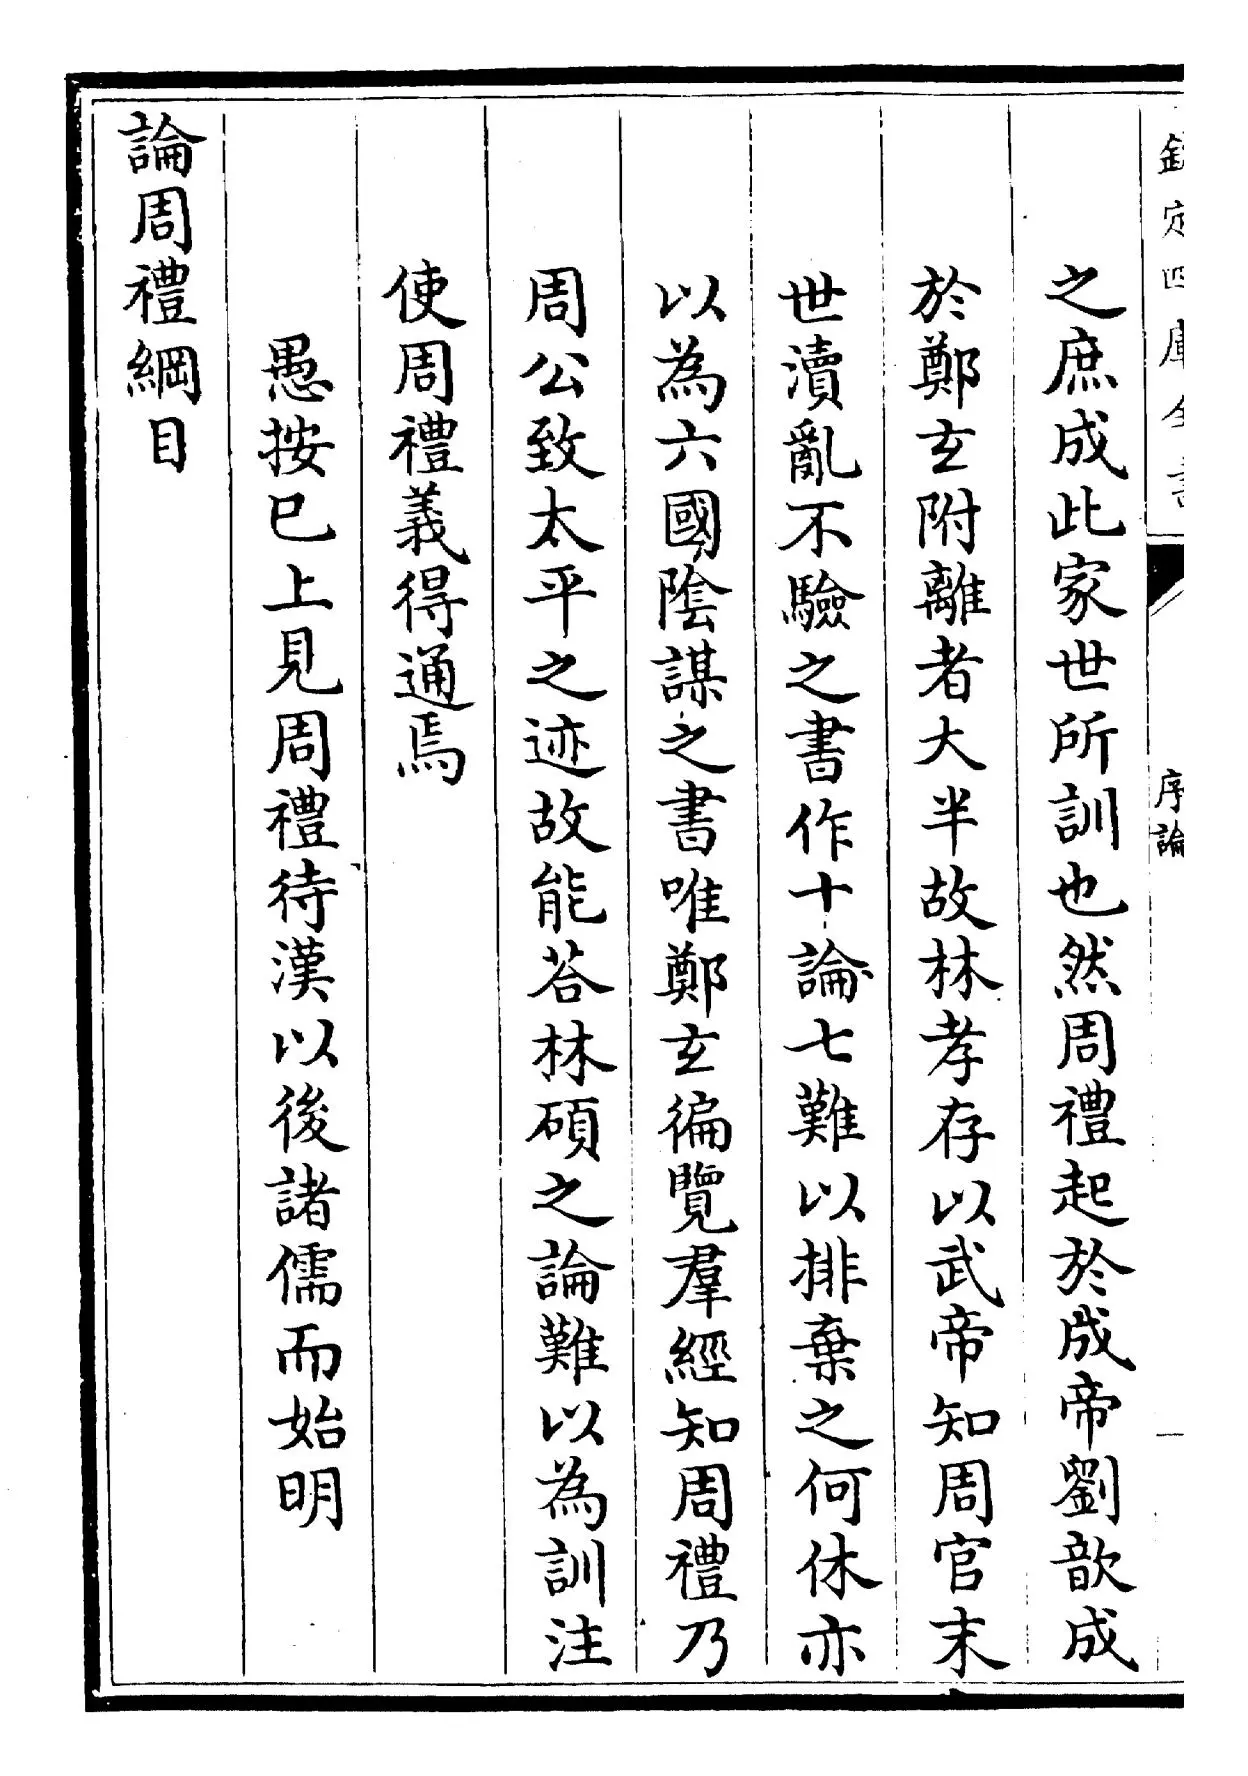 欽定四庫全書
序論
之庶成此家世所訓也然周禮起於成帝劉歆成
於鄭玄附離者大半故林孝存以武帝知周官末
世瀆亂不驗之書作十論七難以排棄之何休亦
以為六國陰謀之書唯鄭玄徧覽羣經知周禮乃
周公致太平之迹故能荅林碩之論難以為訓注
使周禮義得通焉
愚按已上見周禮待漢以後諸儒而始明
論周禮綱目